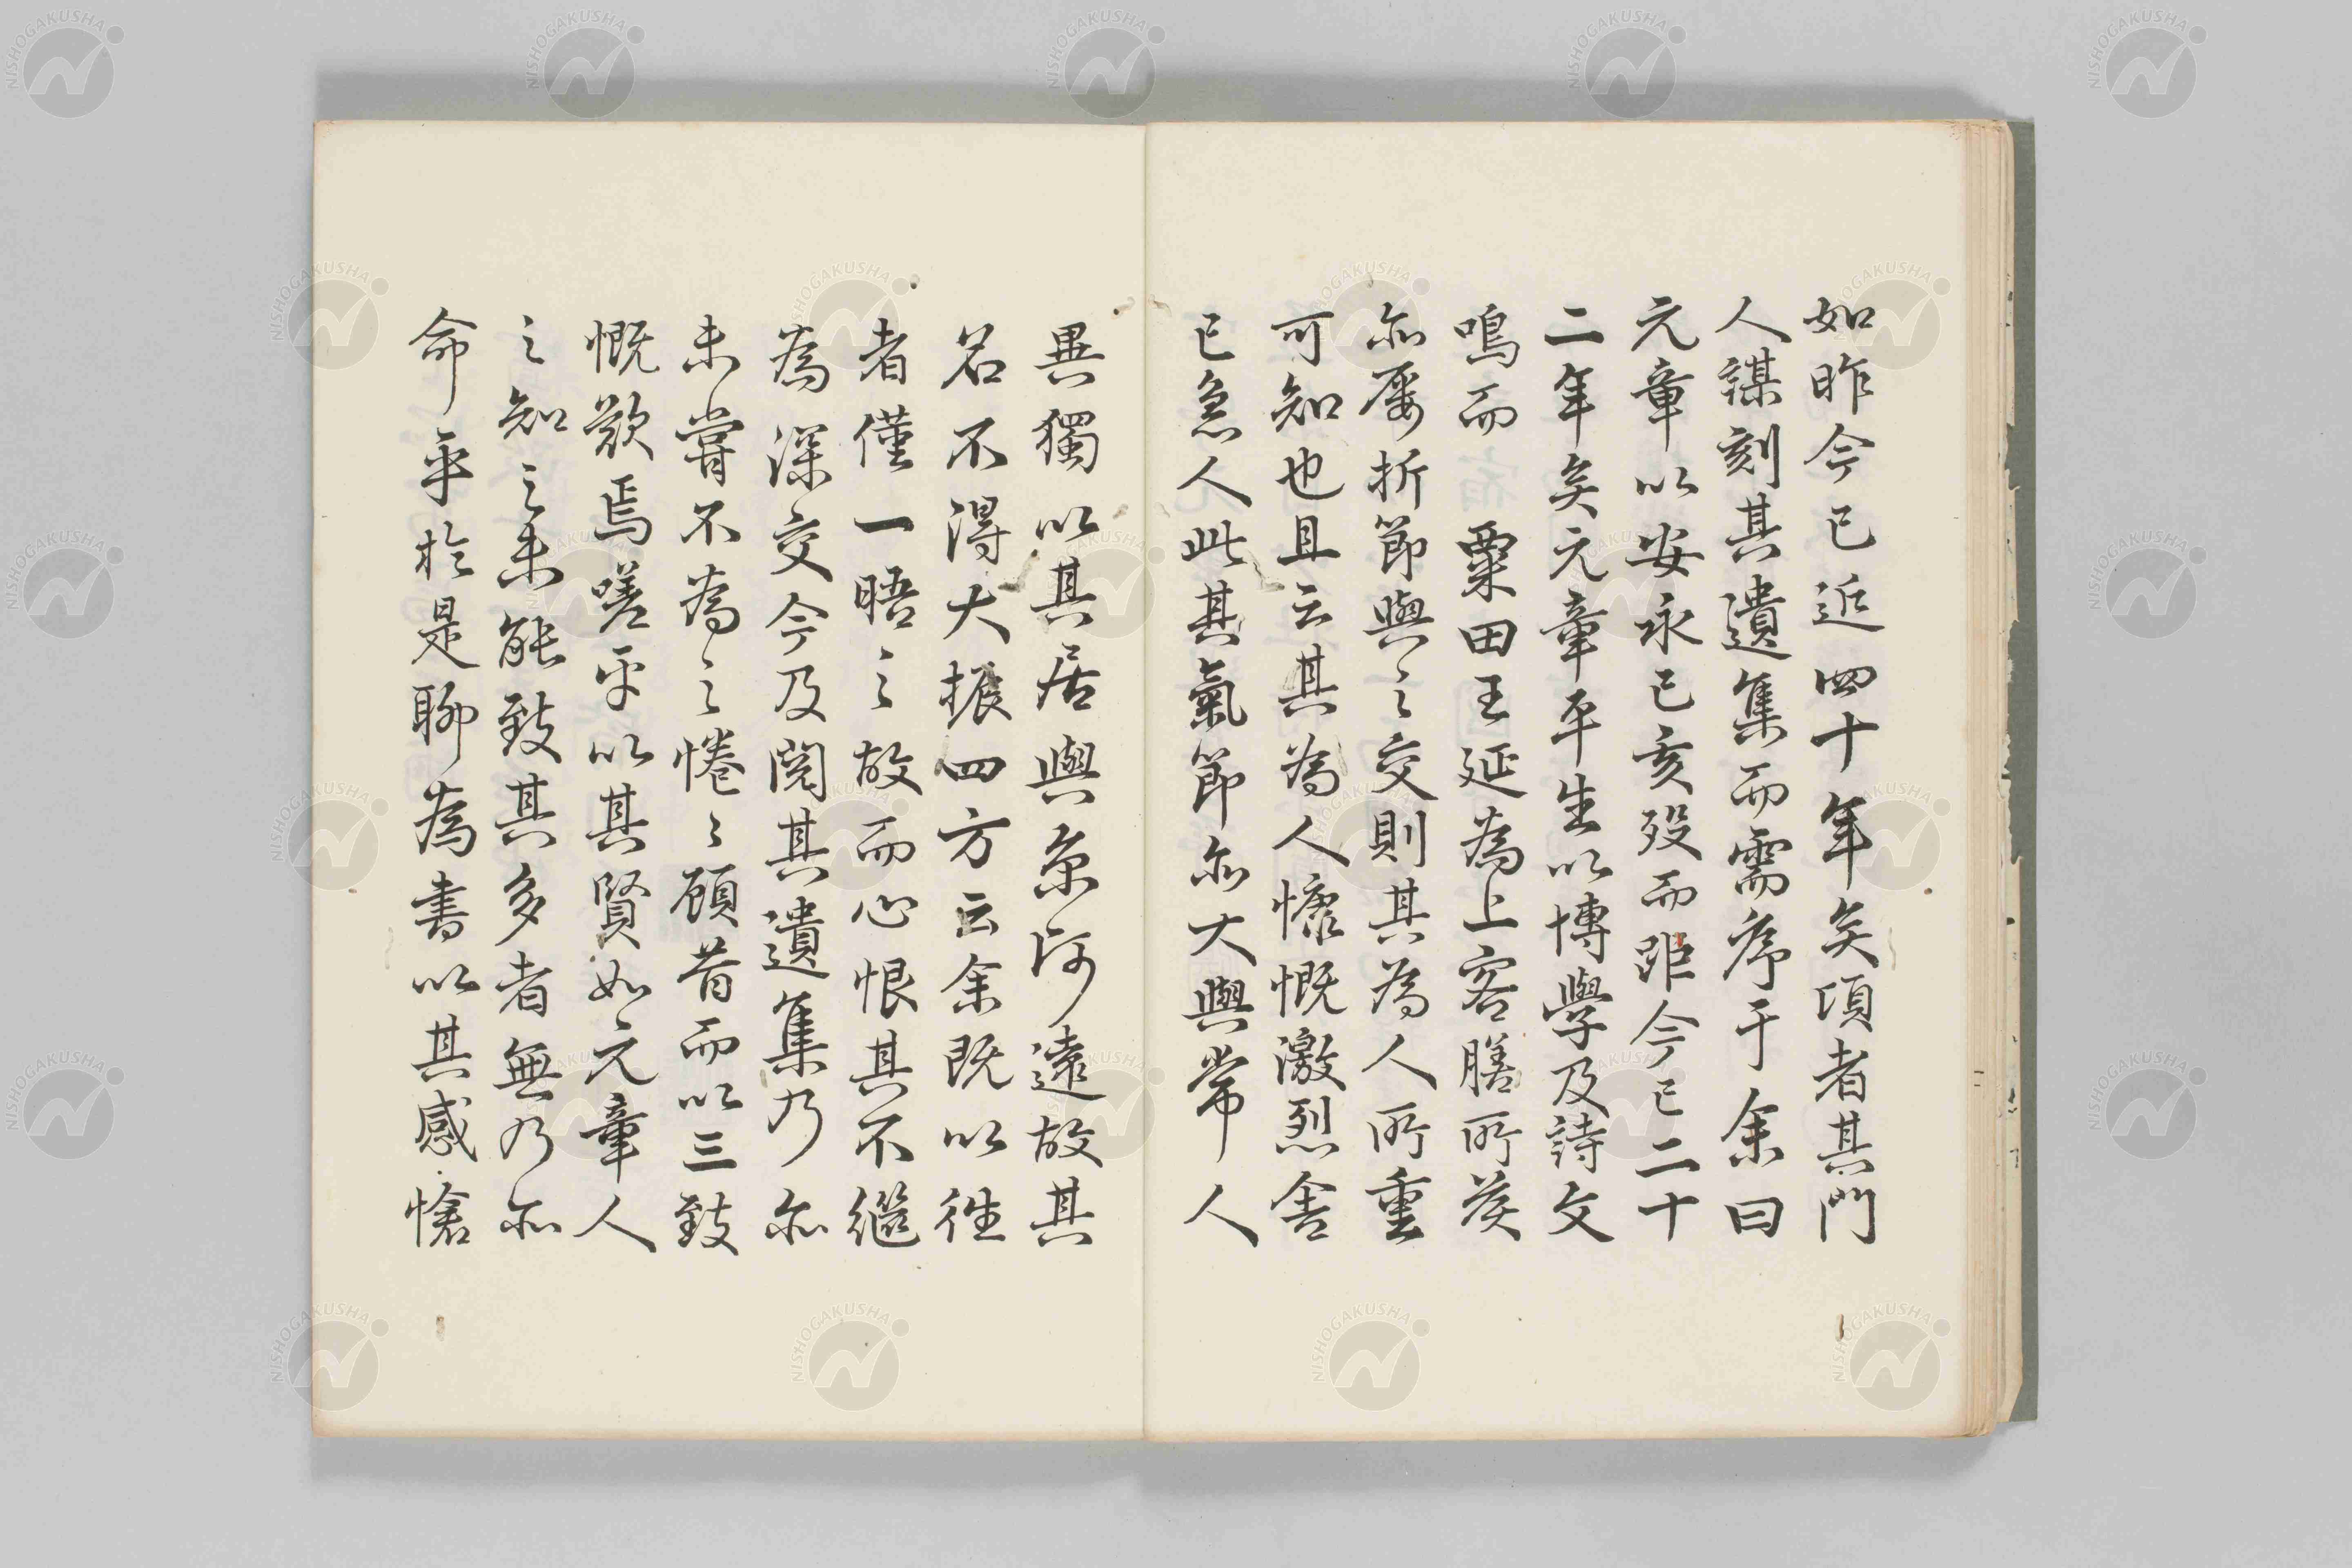 如昨今已近四十年矣頃者其門
人謀刻其遺集而需序于余曰
元章以安永已亥歿而距今已二十
二年矣元章平生以博學及詩文
鳴而 粟田王延為上客膳所矦
亦屡折節與之交則其為人所重
可知也且云其為人慷慨激烈舎
已急人此其氣節亦大與常人
異獨以其居與京師遠故其
名不得大振四方云余既以往
者僅一晤之故而心恨其不繼
為深交今及閲其遺集乃亦
未嘗不為之惓〻顧昔而以三致
慨歎焉嗟乎以其賢如元章人
之知之未能致其多者無乃亦
命乎於是聊為書以其感愴
NISHOGAKUSHA